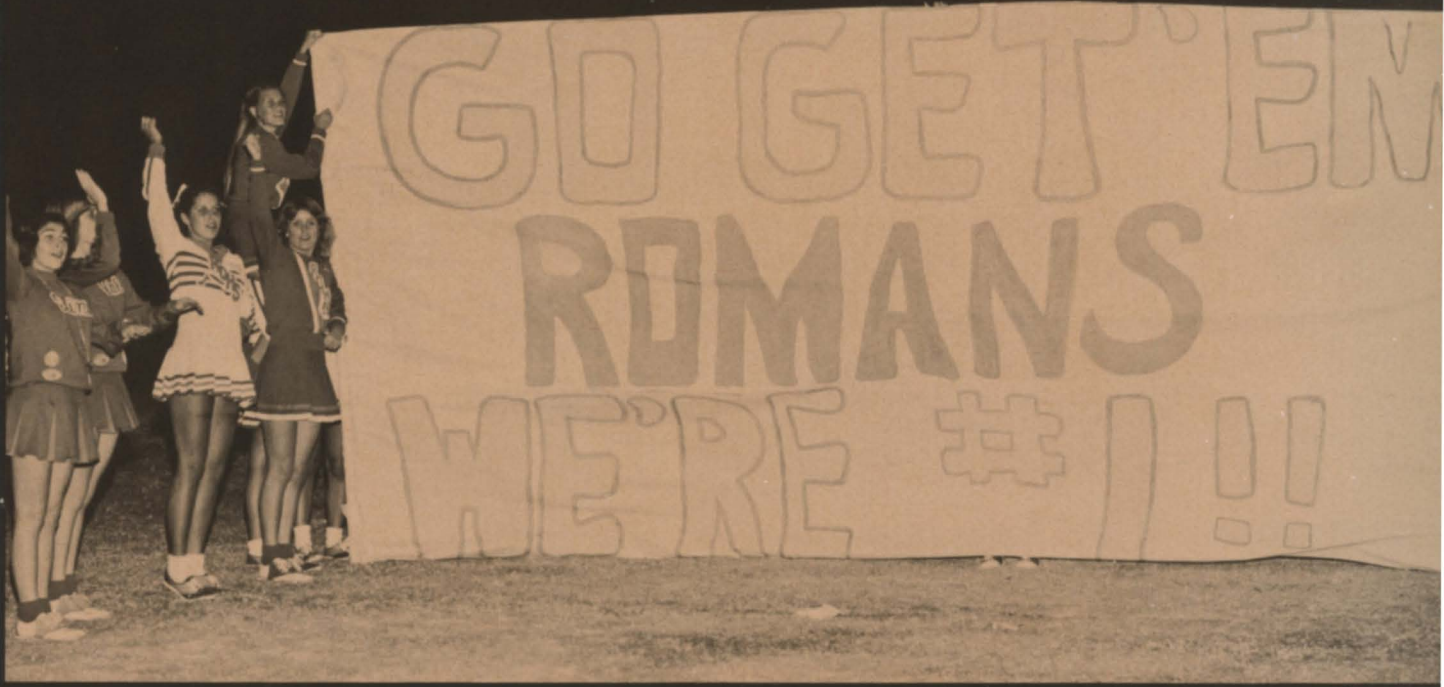 GO GET 'EM
ROMANS
WE'RE #1!!